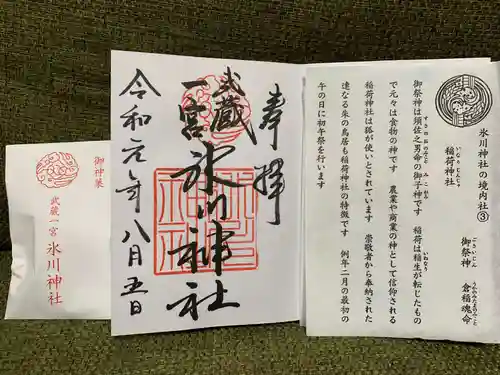 氷川神社の境内社③
稲荷神社
いなりじんじゃ
御祭神 倉稲魂命
ごさいじん うかのみたまのみこと
御祭神は須佐之男命の御子神です 稲荷は稲生が転じたもの
すさのおのみこと みこがみ いねなり
で元々は食物の神です 農業や商業の神として信仰される
稲荷神社は狐が使いとされています 崇敬者から奉納された
連なる朱の鳥居も稲荷神社の特徴です 例年二月の最初の
午の日に初午祭を行います
奉拝
武蔵
一宮
氷川神社
令和元年八月五日
御神菓
武蔵一宮
氷川神社